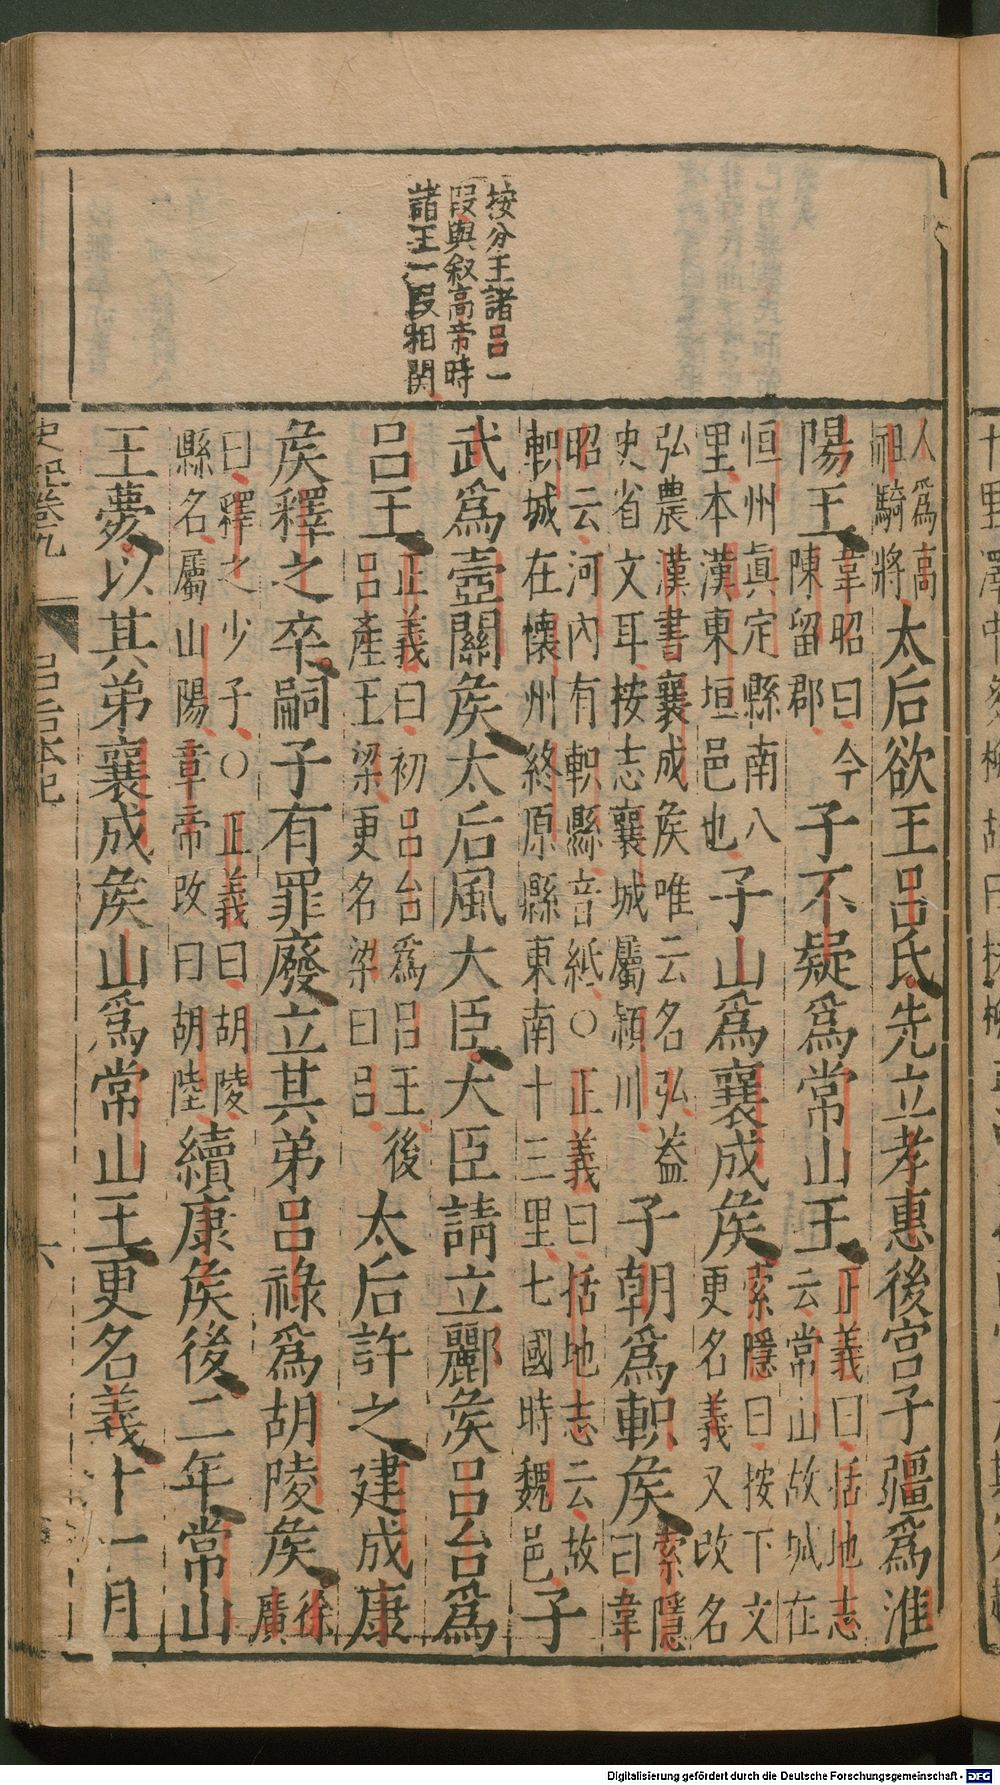 按分王諸呂一
段與叙高帝時
諸王一段相関
人爲高
祖騎將
太后欲王呂氏先立孝惠後宮子彊爲淮
陽王
韋昭曰今
陳留郡
子不疑爲常山王
正義曰括地志
云常山故城在
恒州真定縣南八
里本漢東垣邑也
子山爲襄成矦
索隱曰按下文
更名義又改名
弘農漢書襄成矦唯云名弘葢
史省文耳按志襄城屬潁川
子朝爲軹矦
索隱
曰韋
昭云河內有軹縣音紙○正義曰括地志云故
軹城在懷州終原縣東南十三里七國時魏邑
子
武爲壼關矦太后風大臣大臣請立酈矦呂台爲
呂王
正義曰初呂台爲呂王後
呂產王梁更名梁曰呂
太后許之建成康
矦釋之卒嗣子有罪廢立其弟呂祿爲胡陵矦
徐
廣
曰釋之少子○正義曰胡陵
縣名屬山陽章帝改曰胡陸
續康矦後二年常山
王薨以其弟襄成矦山爲常山王更名義十一月
史記卷九
呂后本紀
六
Digitalisierung gefördert durch die Deutsche Forschungsgemeinschaft - DFG